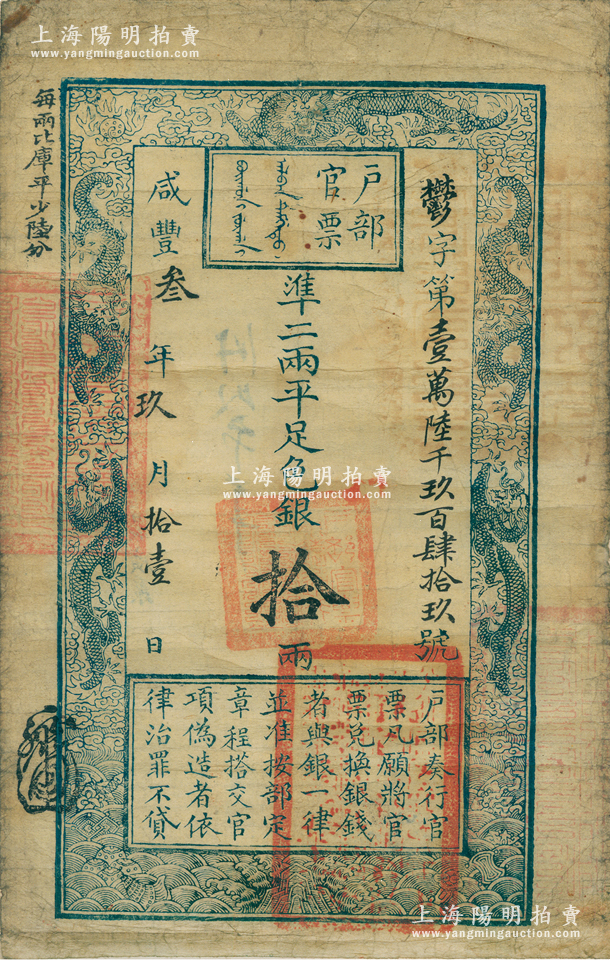 上海陽明拍賣
www.yangmingauction.com
每兩比庫平少陸分
戶部
官票
鬱字第壹萬陸千玖百肆拾玖號
準二兩平足色銀拾兩
咸豐叁年玖月拾壹日
上海陽明拍賣
www.yangmingauction.com
戶部奏行官
票凡願將官
票兌換銀錢
者與銀一律
並准按部定
章程搭交官
項偽造者依
律治罪不貸
上海陽明拍賣
www.yangmingauction.com